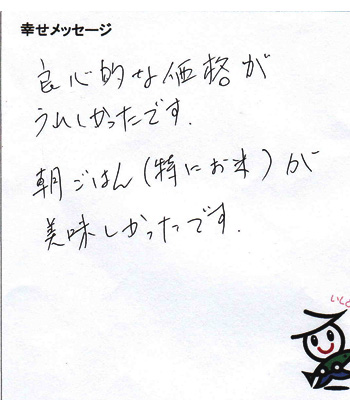 幸せメッセージ
良心的な価格が
うれしかったです.
朝ごはん(特にお米)が
美味しかったです.